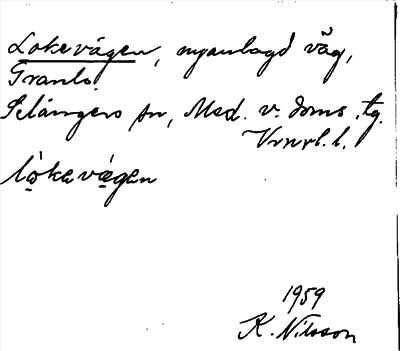 Lokevägen, nyanlagd väg,
Granlo.
Selångers sn, Med. v. doms. tg.
Vrnrl. l.
lo̠ke̠vä̠ge̠n
1959
K. Nilsson